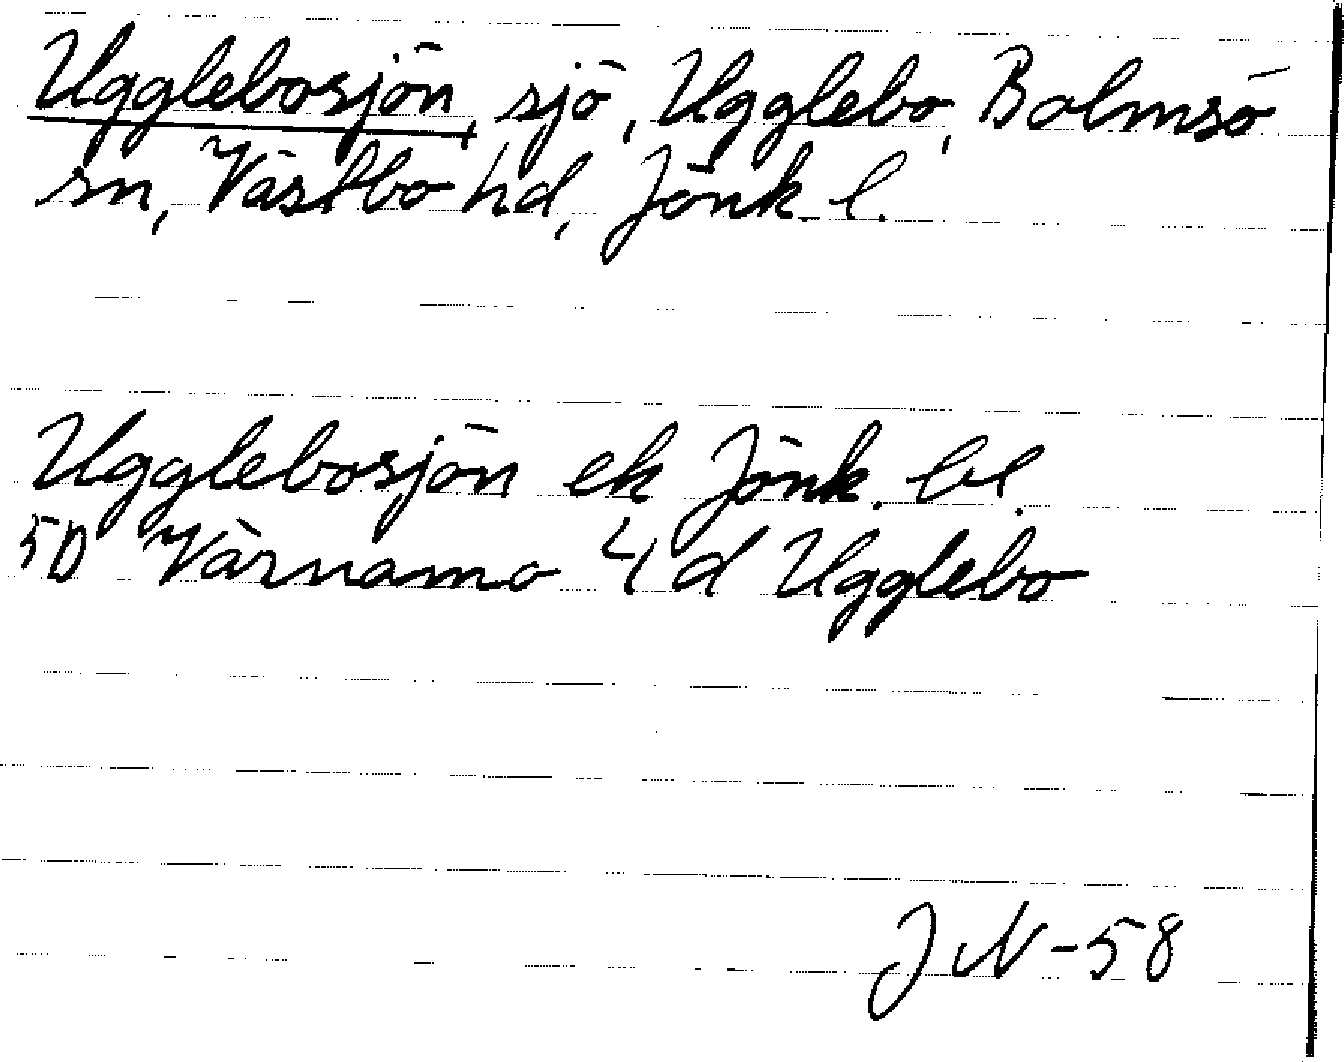 Ugglebosjön, sjö, Ugglebo, Bolmsö
sn, Västbo hd, Jönk. l.
Ugglebosjön ek Jönk. bl.
5D Värnamo 4 d Ugglebo
JN-58